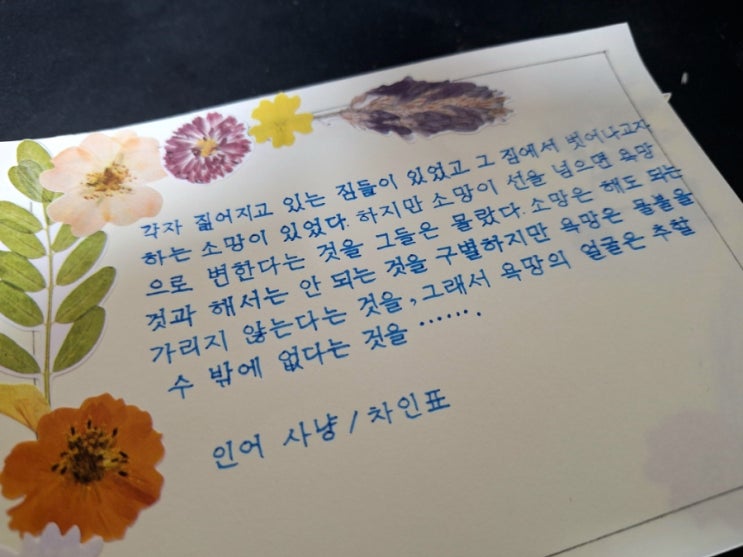 각자 짊어지고 있는 짐들이 있었고 그 짐에서 벗어나고자
하는 소망이 있었다. 하지만 소망이 선을 넘으면 욕망
으로 변한다는 것을 그들은 몰랐다. 소망은 해도 되는
것과 해서는 안 되는 것을 구별하지만 욕망은 물불을
가리지 않는다는 것을, 그래서 욕망의 얼굴은 추할
수 밖에 없다는 것을 …….
인어 사냥 / 차인표